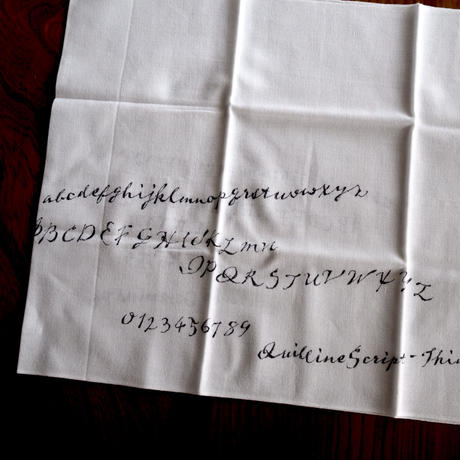 abcdefghijklmnopqrstuvwxyz
ABCDEFGHIJKLMN
OPQRSTUVWXYZ
0123456789
QuillineScript-Thi